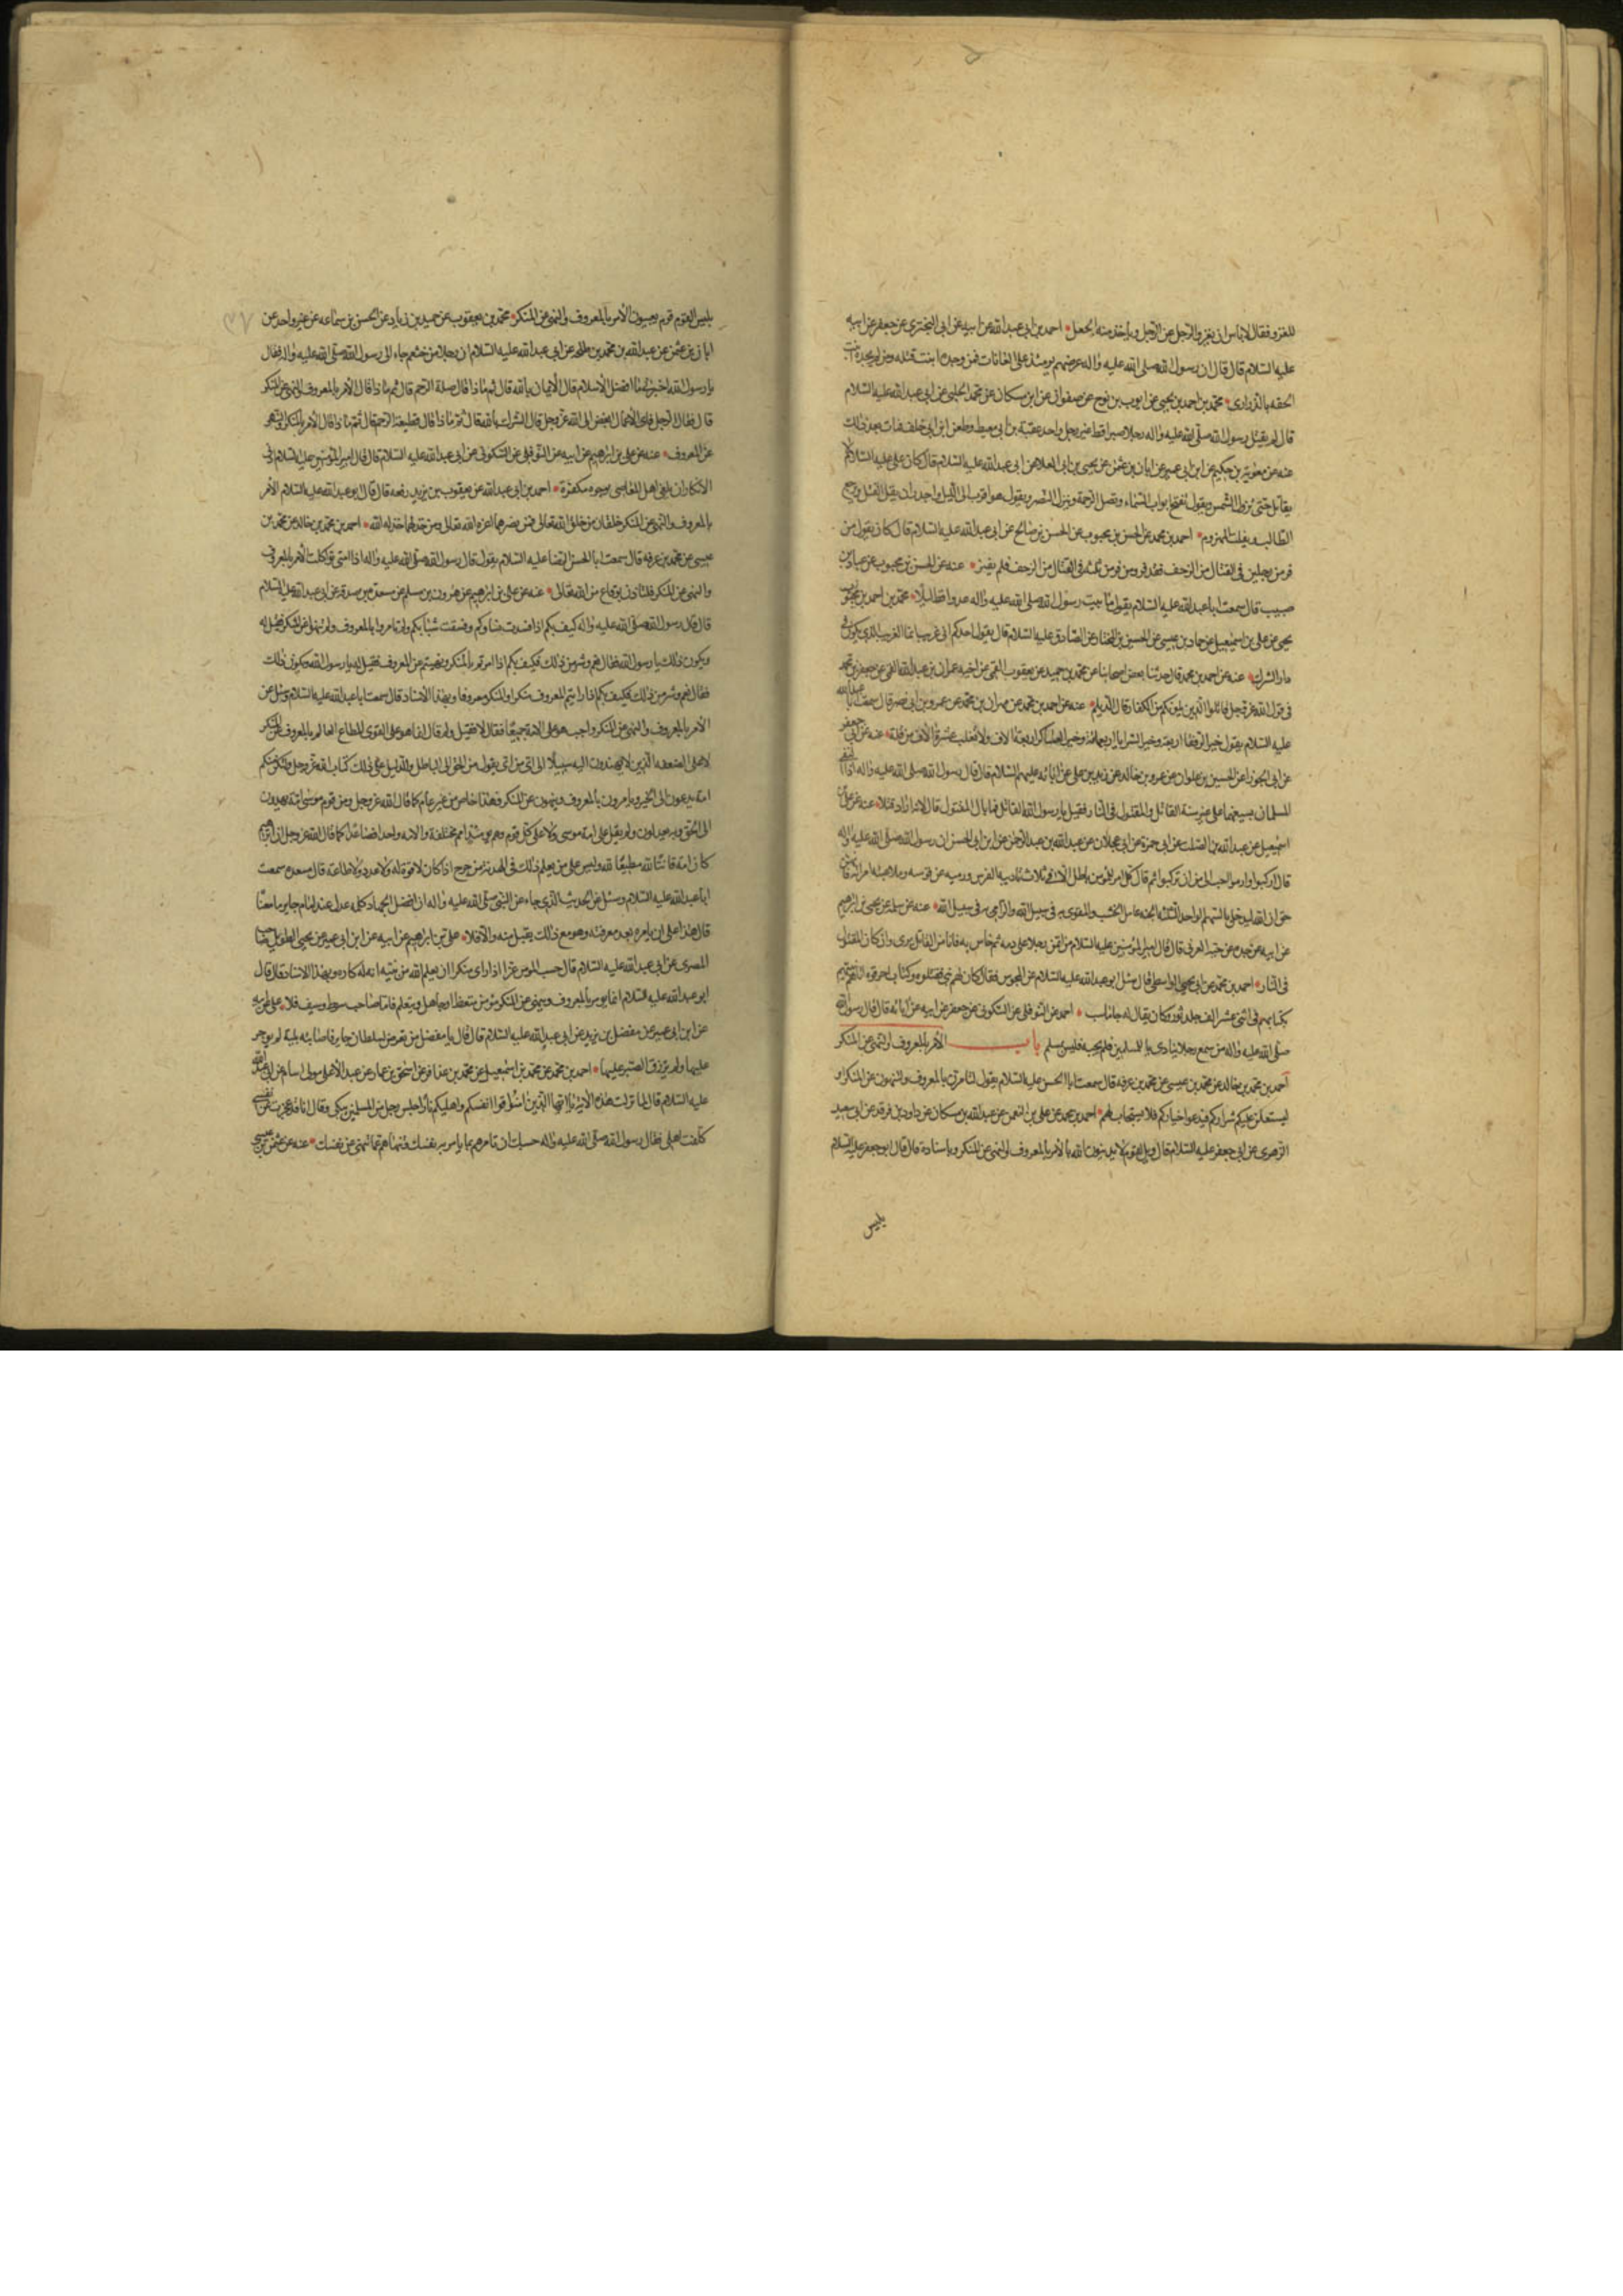 للغزو فقال لا باس ان يغزو الرجل عن الرجل وياخذ منه الجعل احمد بن ابي عبد الله عن ابيه عن ابي البختري عن جعفر عن ابيه
عليه السلام قال قال ان رسول الله صلى الله عليه واله عرضهم يومئذ على العانات فمن وجده انبت قتله ومن لم يجده انبت
الحقه بالذراري محمد بن احمد بن يحيى عن ايوب بن نوح عن صفوان عن ابن مسكان عن محمد الحلبي عن ابي عبد الله عليه السلام
قال لم يقتل رسول الله صلى الله عليه واله رجلا صبرا قط غير رجل واحد عقبة بن ابي معيط وطعن ابن ابي خلف فمات بعد ذلك
عنه عن معوية بن حكيم عن ابن ابي عمير عن ابان بن عثمن عن يحيى بن ابي العلا عن ابي عبد الله عليه السلام قال كان علي عليه السلام لا
يقاتل حتى تزول الشمس ويقول تفتح ابواب السماء وتقبل الرحمة وينزل النصر ويقول هو اقرب الى الليل واجدر ان يقل القتل ويرجع
الطالب ويفلت المهزوم احمد بن محمد عن الحسن بن محبوب عن الحسن بن صالح عن ابي عبد الله عليه السلام قال كان يقول من
فر من رجلين في القتال من الزحف فقد فر ومن فر من ثلثة في القتال من الزحف فلم يفر عنه عن الحسن بن محبوب عن عباد بن
صهيب قال سمعت ابا عبد الله عليه السلام يقول ما بيت رسول الله صلى الله عليه واله عدوا قط ليلا محمد بن احمد بن
يحيى عن علي بن اسمعيل عن حماد بن عيسى عن الحسين بن المختار عن الصادق عليه السلام قال يقول احدكم اني غريب انما الغريب الذي يكون في
دار الشرك عنه عن احمد بن محمد قال حدثنا بعض اصحابنا عن محمد بن حميد عن يعقوب القمي عن اخيه عمران بن عبد الله القمي عن جعفر بن محمد
في قول الله عز وجل قاتلوا الذين يلونكم من الكفار قال الديلم عنه عن احمد بن محمد عن مهران بن محمد عن عمرو بن ابي نصر قال سمعت ابا عبد الله
عليه السلام يقول خير الرفقا اربعة وخير السرايا اربعمائة وخير العساكر اربعة الاف ولا تغلب عشرة الاف من قلة عنه عن ابي جعفر
عن ابي الجوزا عن الحسين بن علوان عن عمرو بن خالد عن زيد بن علي عن ابائه عليهم السلام قال قال رسول الله صلى الله عليه واله اذا التقى
المسلمان بسيفهما على غير سنة القاتل والمقتول في النار فقيل يا رسول الله القاتل فما بال المقتول قال لانه اراد قتلا عنه عن علي بن
اسمعيل عن عبد الله بن الصلت عن ابي حمزة عن ابن عجلان عن عبد الله بن عبد الرحمن عن ابن ابي الحسن ان رسول الله صلى الله عليه واله
قال اركبوا وارموا احب الي من ان تركبوا ثم قال كل امر للمؤمن باطل الا في ثلاث تاديبه الفرس ورميه عن قوسه وملاعبته امراته فانهن
حق ان الله ليدخل بالسهم الواحد الثلثة الجنة عامل الخشب والمقوي به في سبيل الله والرامي به في سبيل الله عنه عن سلمة عن يحيى بن ابراهيم
عن ابيه عن جده عن حبة العرني قال قال امير المؤمنين عليه السلام من ائتمن رجلا على دمه ثم خاس به فانا من القاتل بري وان كان المقتول
في النار احمد بن محمد عن ابي يحيى الواسطي قال سئل ابو عبد الله عليه السلام عن المجوس فقال كان لهم نبي فقتلوه وكتاب احرقوه اتاهم نبيهم
بكتابهم في اثني عشر الف جلد ثور وكان يقال له جاماسب احمد عن النوفلي عن السكوني عن جعفر عن ابيه عن ابائه قال قال رسول الله
صلى الله عليه واله من سمع رجلا ينادي يا للمسلمين فلم يجبه فليس بمسلم باب الامر بالمعروف والنهي عن المنكر
احمد بن محمد بن خالد عن محمد بن عيسى عن محمد بن عرفه قال سمعت ابا الحسن عليه السلام يقول لتامرن بالمعروف ولتنهون عن المنكر او
ليستعملن عليكم شراركم فيدعوا خياركم فلا يستجاب لهم احمد بن محمد عن علي بن النعمن عن عبد الله بن مسكان عن داود بن فرقد عن ابي سعيد
الزهري عن ابي جعفر عليه السلام قال ويل لقوم لا يدينون الله بالامر بالمعروف والنهي عن المنكر وباسناده قال قال ابو جعفر عليه السلام
بئس
بئس القوم قوم يعيبون الامر بالمعروف والنهي عن المنكر محمد بن يعقوب عن حميد بن زياد عن الحسن بن سماعه عن غير واحد عن
ابان بن عثمن عن عبد الله بن محمد بن طلحه عن ابي عبد الله عليه السلام ان رجلا من خثعم جاء الى رسول الله صلى الله عليه واله فقال
يا رسول الله اخبرني ما افضل الاسلام قال الايمان بالله قال ثم ماذا قال صلة الرحم قال ثم ماذا قال الامر بالمعروف والنهي عن المنكر
قال فقال الرجل فاي الاعمال ابغض الى الله عز وجل قال الشرك بالله قال ثم ماذا قال قطيعة الرحم قال ثم ماذا قال الامر بالمنكر والنهي
عن المعروف عنه عن علي بن ابراهيم عن ابيه عن النوفلي عن السكوني عن ابي عبد الله عليه السلام قال قال امير المؤمنين عليه السلام ادنى
الانكار ان يلقى اهل المعاصي بوجوه مكفهرة احمد بن ابي عبد الله عن يعقوب بن يزيد رفعه قال قال ابو عبد الله عليه السلام الامر
بالمعروف والنهي عن المنكر خلقان من خلق الله تعالى فمن نصرهما اعزه الله تعالى ومن خذلهما خذله الله احمد بن محمد بن خالد عن محمد بن
عيسى عن محمد بن عرفه قال سمعت ابا الحسن الرضا عليه السلام يقول قال رسول الله صلى الله عليه واله اذا امتي تواكلت الامر بالمعروف
والنهي عن المنكر فلتاذن بوقاع من الله تعالى عنه عن علي بن ابراهيم عن هرون بن مسلم عن مسعدة بن صدقة عن ابي عبد الله عليه السلام
قال قال رسول الله صلى الله عليه واله كيف بكم اذا فسدت نساؤكم وفسقت شبابكم ولم تامروا بالمعروف ولم تنهوا عن المنكر فقيل له
ويكون ذلك يا رسول الله فقال نعم وشر من ذلك فكيف بكم اذا امرتم بالمنكر ونهيتم عن المعروف فقيل له يا رسول الله ويكون ذلك
فقال نعم وشر من ذلك فكيف بكم اذا رايتم المعروف منكرا والمنكر معروفا وبهذا الاسناد قال سمعت ابا عبد الله عليه السلام وسئل عن
الامر بالمعروف والنهي عن المنكر واجب هو على الامة جميعا فقال لا فقيل ولم قال انما هو على القوي المطاع العالم بالمعروف من المنكر
لا على الضعفه الذين لا يهتدون اليه سبيلا الى اي من اي يقول من الحق الى الباطل والدليل على ذلك كتاب الله عز وجل ولتكن منكم
امة يدعون الى الخير ويامرون بالمعروف وينهون عن المنكر فهذا خاص من غير عام كما قال الله عز وجل ومن قوم موسى امة يهدون
الى الحق وبه يعدلون ولم يقل على امة موسى ولا على كل قوم وهم يومئذ امم مختلفة والامة واحد فصاعدا كما قال الله عز وجل ان ابراهيم
كان امة قانتا لله مطيعا لله وليس على من يعلم ذلك في الهدنة من حرج اذا كان لا قوة له ولا عدد ولا طاعة قال مسعده سمعت
ابا عبد الله عليه السلام وسئل عن الحديث الذي جاء عن النبي صلى الله عليه واله ان افضل الجهاد كلمة عدل عند امام جاير ما معناه
قال هذا على ان يامره بعد معرفته وهو مع ذلك يقبل منه والا فلا علي بن ابراهيم عن ابيه عن ابن ابي عمير عن يحيى الطويل صاحب
المصري عن ابي عبد الله عليه السلام قال حسب المؤمن عزا اذا راى منكرا ان يعلم الله من نيته انه له كاره وبهذا الاسناد قال قال
ابو عبد الله عليه السلام انما يؤمر بالمعروف وينهى عن المنكر مؤمن متعظ او جاهل ويتعلم فاما صاحب سوط وسيف فلا علي عن ابيه
عن ابن ابي عمير عن مفضل بن يزيد عن ابي عبد الله عليه السلام قال قال يا مفضل من تعرض لسلطان جاير فاصابته بلية لم يوجر
عليها ولم يرزق الصبر عليها احمد بن محمد عن محمد بن اسمعيل عن محمد بن عذافر عن اسحق بن عمار عن عبد الاعلى مولى ال سام عن ابي عبد الله
عليه السلام قال لما نزلت هذه الاية يا ايها الذين امنوا قوا انفسكم واهليكم نارا جلس رجل من المسلمين يبكي وقال انا قد عجزت عن نفسي
كلفت اهلي فقال رسول الله صلى الله عليه واله حسبك ان تامرهم بما يامر به نفسك وتنهاهم عما تنهى عن نفسك عنه عن عثمن بن عيسى